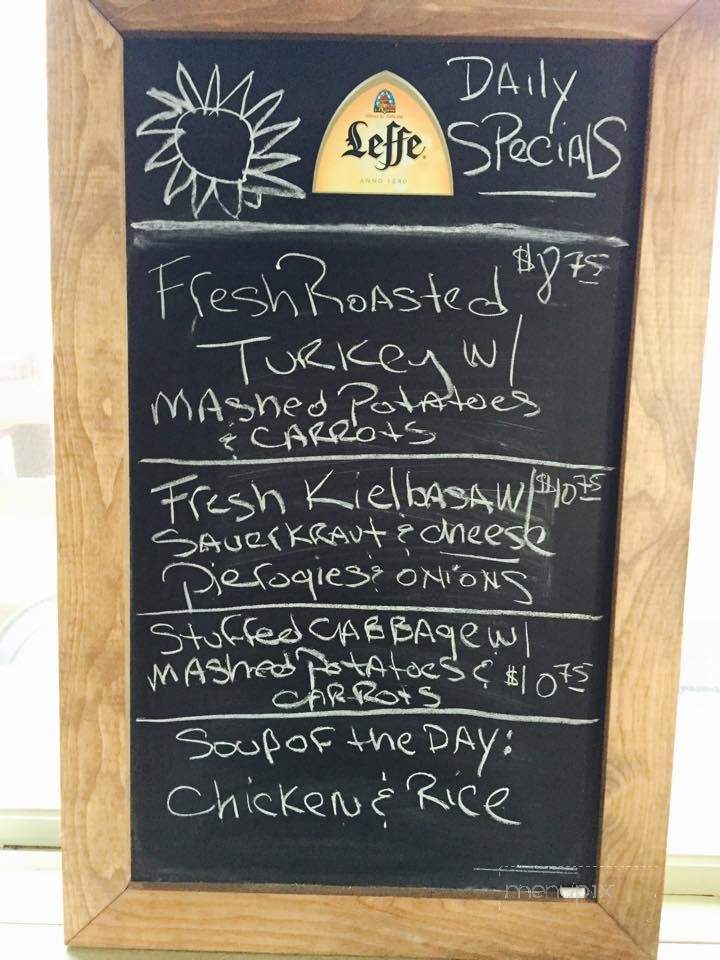 Daily
Specials
Leffe
ANNO 1240
Fresh Roasted $8 75
Turkey w/
Mashed Potatoes
& Carrots
Fresh Kielbasa w/ $10 75
Sauerkraut & cheese
Pierogies & onions
Stuffed Cabbage w/
Mashed Potatoes & $10 75
Carrots
Soup of the Day:
Chicken & Rice
menupix